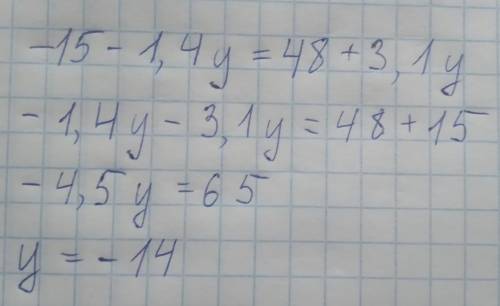 -15 - 1,4y = 48 + 3,1y
-1,4y - 3,1y = 48 + 15
-4,5y = 65
y = -14